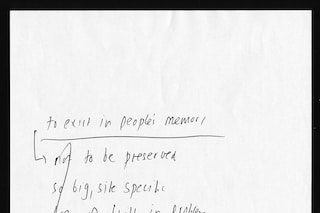 to exist in people's memory
not to be preserved
so big, site specific
built in problem